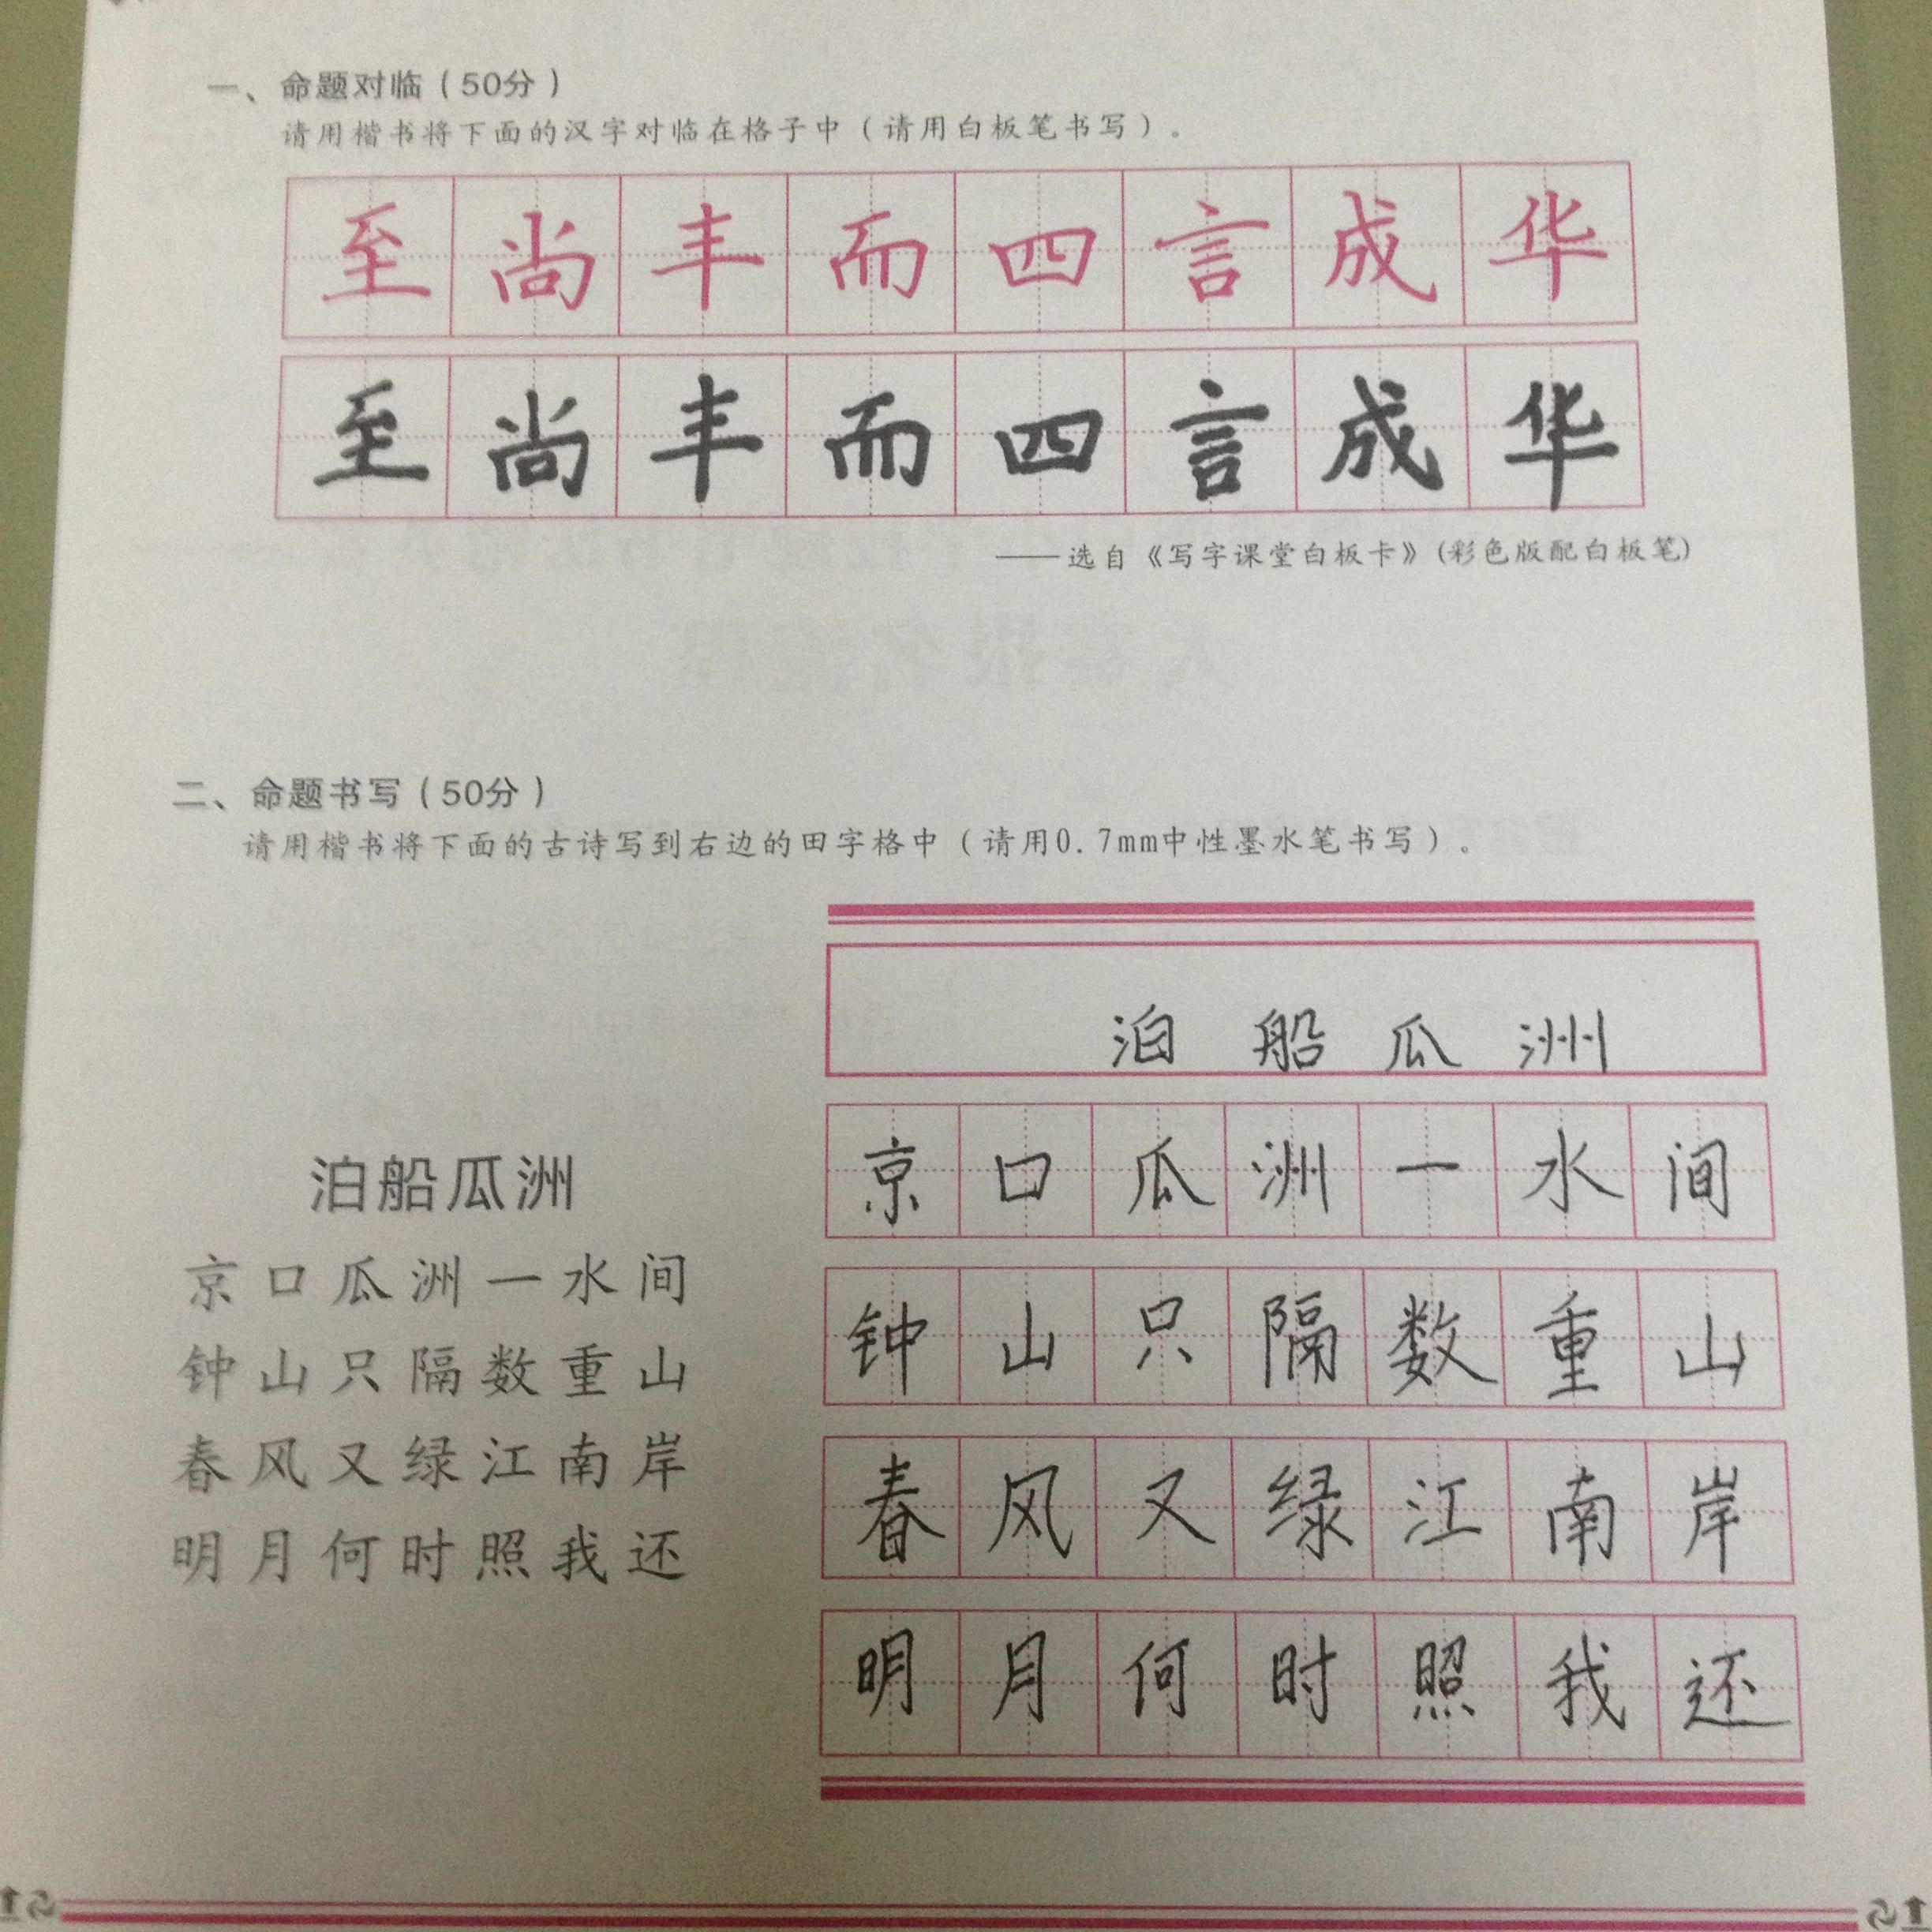 一、命题对临（50分）
请用楷书将下面的汉字对临在格子中（请用白板笔书写）。
至尚丰而四言成华
至尚丰而四言成华
——选自《写字课堂白板卡》(彩色版配白板笔)
二、命题书写（50分）
请用楷书将下面的古诗写到右边的田字格中（请用0.7mm中性墨水笔书写）。
泊船瓜洲
京口瓜洲一水间
钟山只隔数重山
春风又绿江南岸
明月何时照我还
泊船瓜洲
京口瓜洲一水间
钟山只隔数重山
春风又绿江南岸
明月何时照我还